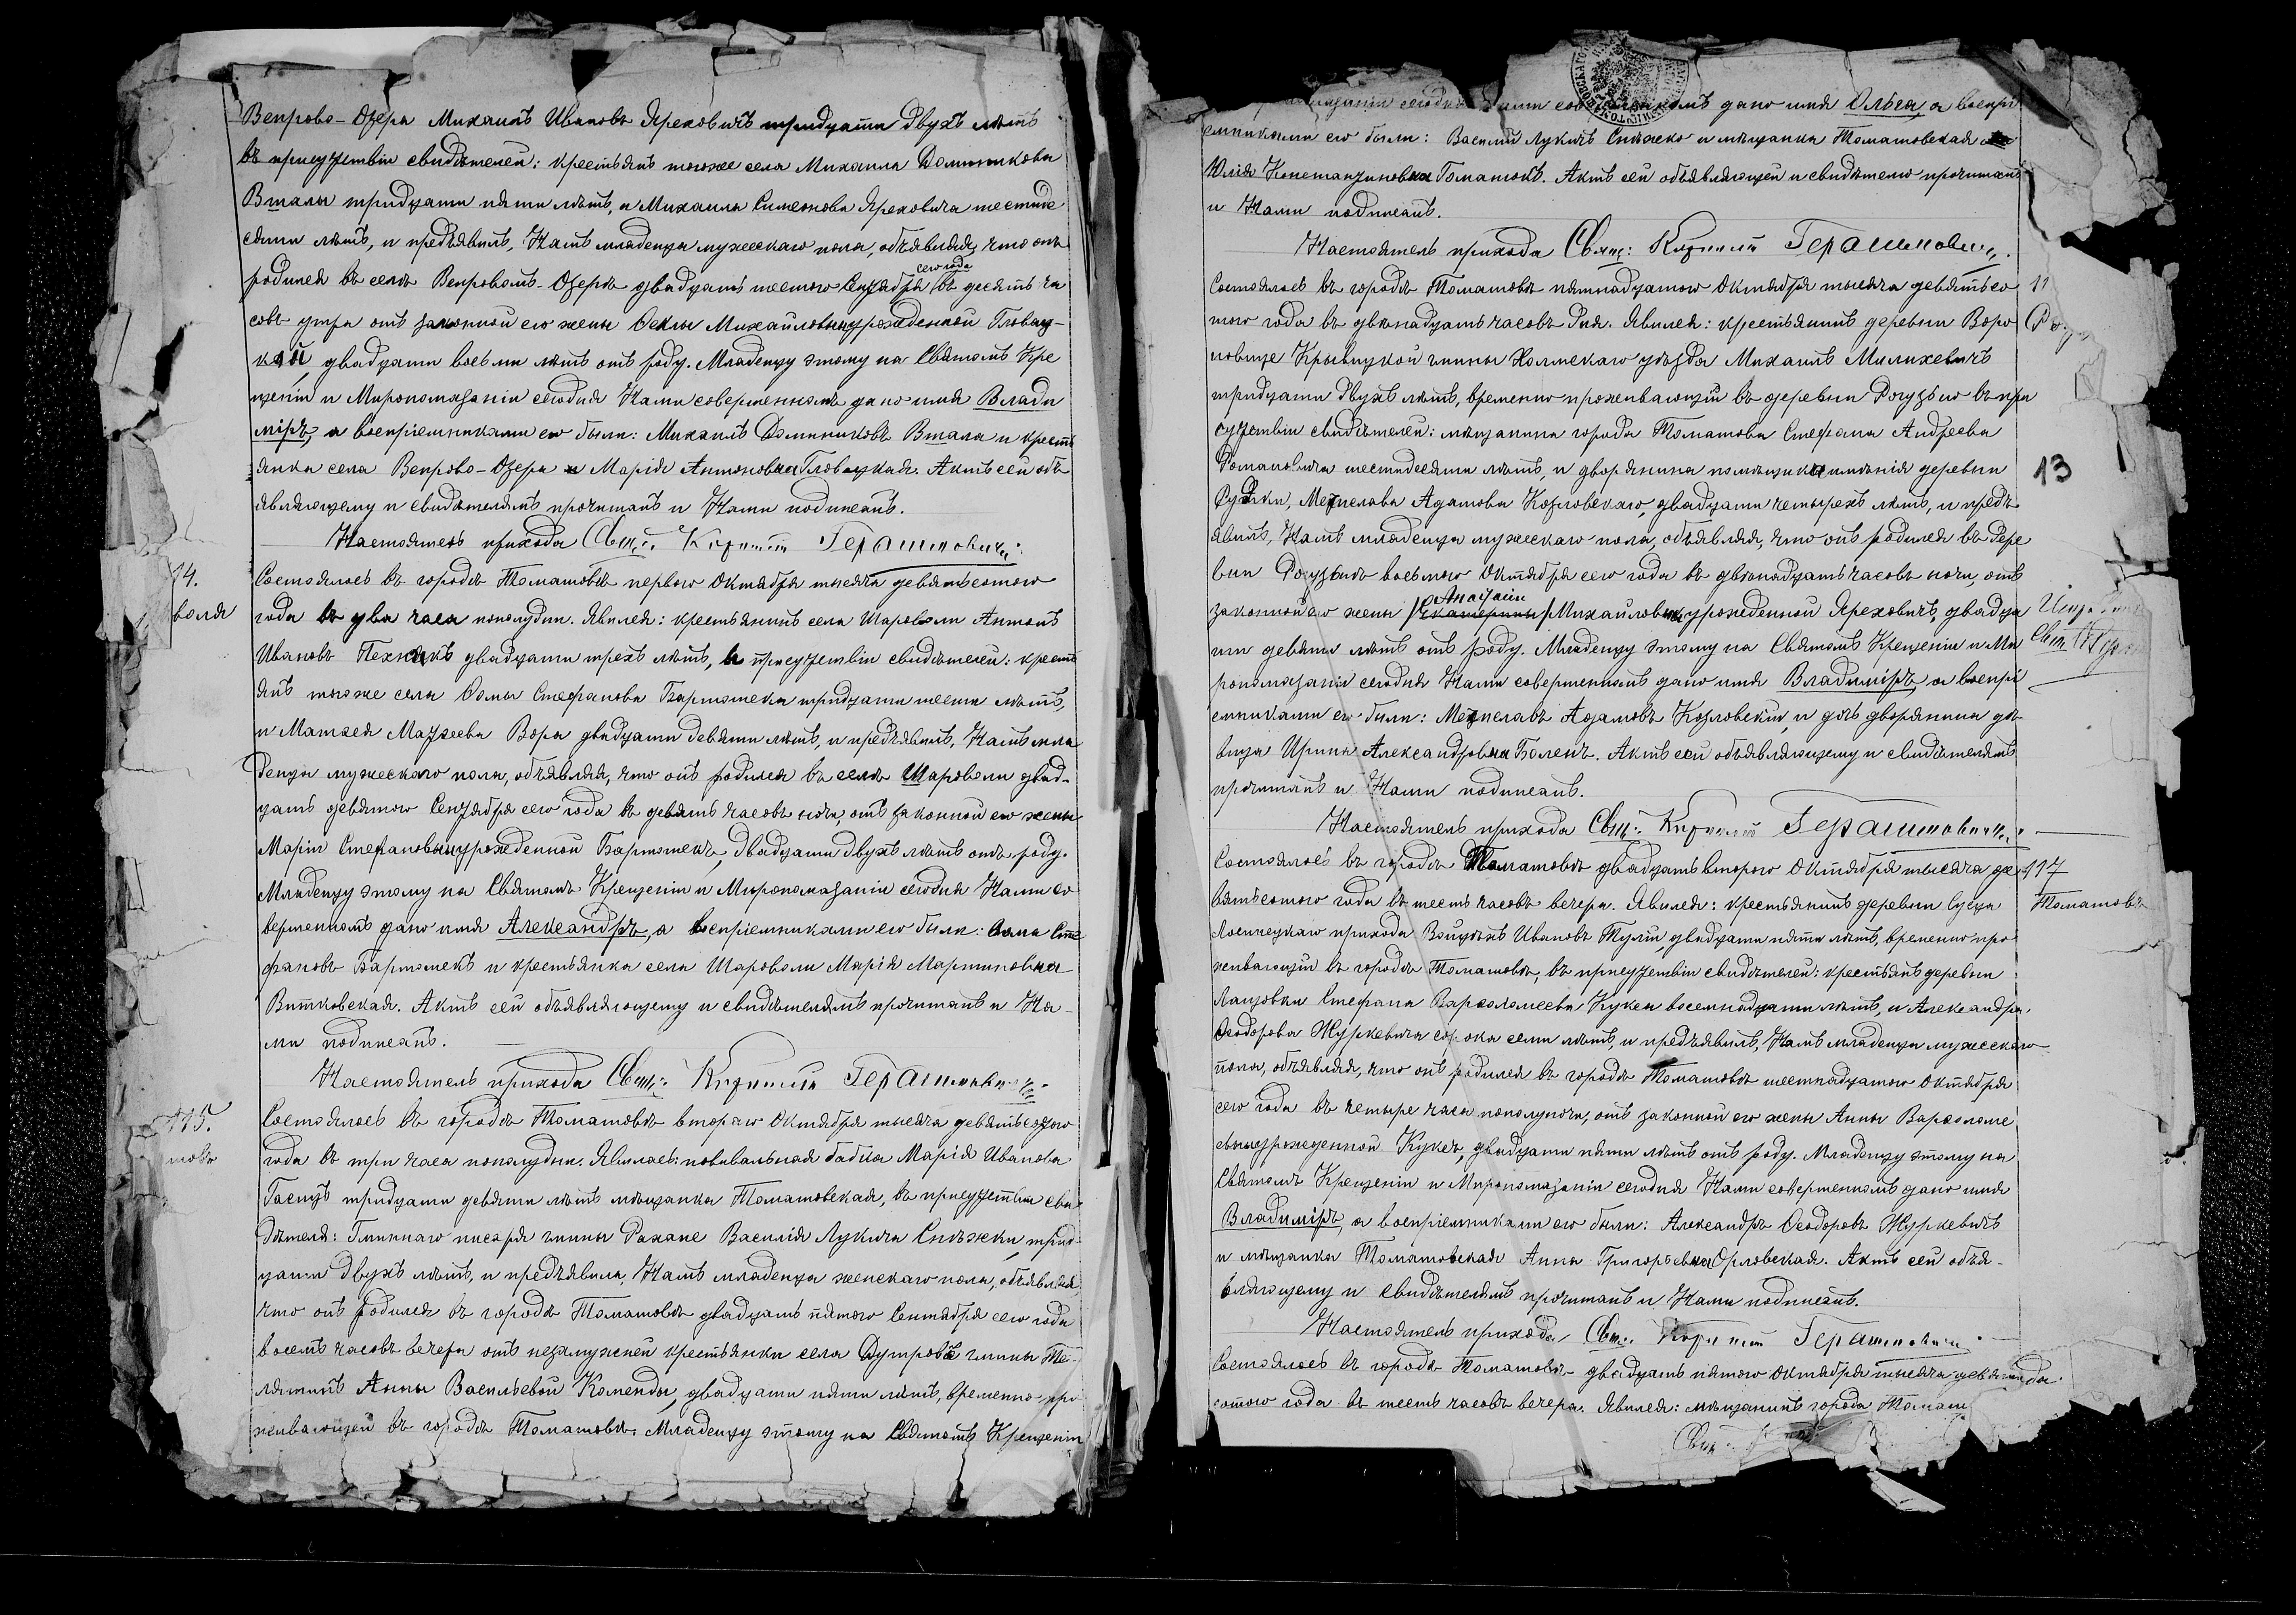 Вепрово-Озера Михаилъ Ивановъ Яреховичъ тридцати двухъ лѣтъ
въ присутствіи свидѣтелей: крестьянъ тогоже села Михаила Доминикова
Втала тридцати пяти лѣтъ, и Михаила Симеонова Яреховича шестиде
сяти лѣтъ, и предъявилъ Намъ младенца мужескаго пола, объявляя, что онъ
родился въ селѣ Вепровомъ-Озерѣ двадцать шестого Сентября сего года въ десять ча
совъ утра отъ законной его жены Ѳеклы Михайловны урожденной Гловац-
кой, двадцати восьми лѣтъ отъ роду. Младенцу этому на Святомъ Кре
щеніи и Миропомазаніи сегодня Нами совершенномъ дано имя Влади
міръ, а воспріемниками его были: Михаилъ Доминиковъ Втала и кресть
янка села Вепрово-Озера Марія Антоновна Гловацкая. Актъ сей объ
являющему и свидѣтелямъ прочитанъ и Нами подписанъ.
Настоятель прихода Свящ: Кириллъ Герашимовичъ
14.
воля
Состоялось въ городѣ Томашовѣ перваго Октября тысяча девятьсотого
года въ два часа пополудни. Явился: крестьянинъ села Шароволи Антонъ
Ивановъ Пехнякъ двадцати трехъ лѣтъ, въ присутствіи свидѣтелей: кресть
янъ тогоже села Ѳомы Стефанова Бартошека тридцати шести лѣтъ,
и Матѳея Матѳеева Вора двадцати девяти лѣтъ, и предъявилъ Намъ мла
денца мужескаго пола, объявляя, что онъ родился въ селѣ Шароволи двад-
цать девятого Сентября сего года въ девять часовъ ночи, отъ законной его жены
Маріи Стефановны урожденной Бартошекъ, двадцати двухъ лѣтъ отъ роду.
Младенцу этому на Святомъ Крещеніи и Миропомазаніи сегодня Нами со
вершенномъ дано имя Александръ, а воспріемниками его были: Ѳома Сте
фановъ Бартошекъ и крестьянка села Шароволи Марія Мартиновна
Витковская. Актъ сей объявляющему и свидѣтелямъ прочитанъ и На-
ми подписанъ.
Настоятель прихода Свящ: Кириллъ Герашимовичъ
115.
шовъ
Состоялось въ городѣ Томашовѣ второго Октября тысяча девятьсотого
года въ три часа пополудни. Явилась: повивальная бабка Марія Иванова
тридцати девяти лѣтъ мѣщанка Томашовская, въ присутствіи сви
дѣтеля: Гминнаго писаря гмины Рахане Василія Лукича Снѣжки, трид
цати двухъ лѣтъ, и предъявила Намъ младенца женскаго пола, объявляя,
что онъ родился въ городѣ Томашовѣ двадцать пятого Сентября сего года
восемь часовъ вечера отъ незамужней крестьянки села Дутровъ гмины Те-
лятинъ Анны Васильевой Коменды, двадцати пяти лѣтъ, временно про
живающей въ городѣ Томашовѣ. Младенцу этому на Святомъ Крещеніи
сегодня Нами совершенномъ дано имя Ольга, а воспрі
емниками его были: Василій Лукичъ Снѣжко и мѣщанка Томашовская
Юлія Константиновна Романюкъ. Актъ сей объявляющей и свидѣтелю прочитанъ
и Нами подписанъ.
Настоятель прихода Свящ: Кириллъ Герашимовичъ
11
Состоялось въ городѣ Томашовѣ пятнадцатого Октября тысяча девятьсо
того года въ двѣнадцать часовъ дня. Явился: крестьянинъ деревни Воро
новице Крывицкой гмины Холмскаго уѣзда Михаилъ Милихевичъ
тридцати двухъ лѣтъ, временно проживающій въ деревни Рогузьно въ при
сутствіи свидѣтелей: мѣщанина города Томашова Стефана Андреева
Романовича шестидесяти лѣтъ, и дворянина помѣщика имѣнія деревни
13
Рудки, Мечислава Адамова Козловскаго, двадцати четырехъ лѣтъ, и предъ
явилъ Намъ младенца мужескаго пола, объявляя, что онъ родился въ дере
вни Рогузьнѣ восьмого Октября сего года въ двѣнадцать часовъ ночи, отъ
законной его жены /Екатерины/ Михайловны урожденной Яреховичъ, двадца
ти девяти лѣтъ отъ роду. Младенцу этому на Святомъ Крещеніи и Ми
ропомазаніи сегодня Нами совершенномъ дано имя Владиміръ, а воспрі
емниками его были: Мечиславъ Адамовъ Козловскій, и дочь дворянина дѣ
вица Ирина Александровна Боленъ. Актъ сей объявляющему и свидѣтелямъ
прочитанъ и Нами подписанъ.
Настоятель прихода Свящ: Кириллъ Герашимовичъ
Состоялось въ городѣ Томашовѣ двадцать второго Октября тысяча де
117
Томашовъ
вятьсотого года въ шесть часовъ вечера. Явился: крестьянинъ деревни Сусца
Лосинецкаго прихода Войцехъ Ивановъ двадцати пяти лѣтъ, временно про
живающій въ городѣ Томашовѣ, въ присутствіи свидѣтелей: крестьянъ деревни
Лащовки Стефана Варѳоломеева Кукса восемнадцати лѣтъ, и Александра
Ѳеодорова Журкевича сорока семи лѣтъ, и предъявилъ Намъ младенца мужескаго
пола, объявляя, что онъ родился въ городѣ Томашовѣ шестнадцатого Октября
сего года въ четыре часа пополуночи, отъ законной его жены Анны Варѳоломе
евны урожденной Куксъ, двадцати пяти лѣтъ отъ роду. Младенцу этому на
Святомъ Крещеніи и Миропомазаніи сегодня Нами совершенномъ дано имя
Владиміръ, а воспріемниками его были: Александръ Ѳеодоровъ Журкевичъ
и мѣщанка Томашовская Анна Григорьевна Орловская. Актъ сей объя-
вляющему и свидѣтелямъ прочитанъ и Нами подписанъ.
Настоятель прихода Свящ: Кириллъ Герашимовичъ
Состоялось въ городѣ Томашовѣ двадцать пятого Октября тысяча девять
сотого года въ шесть часовъ вечера. Явился: мѣщанинъ города Томаш